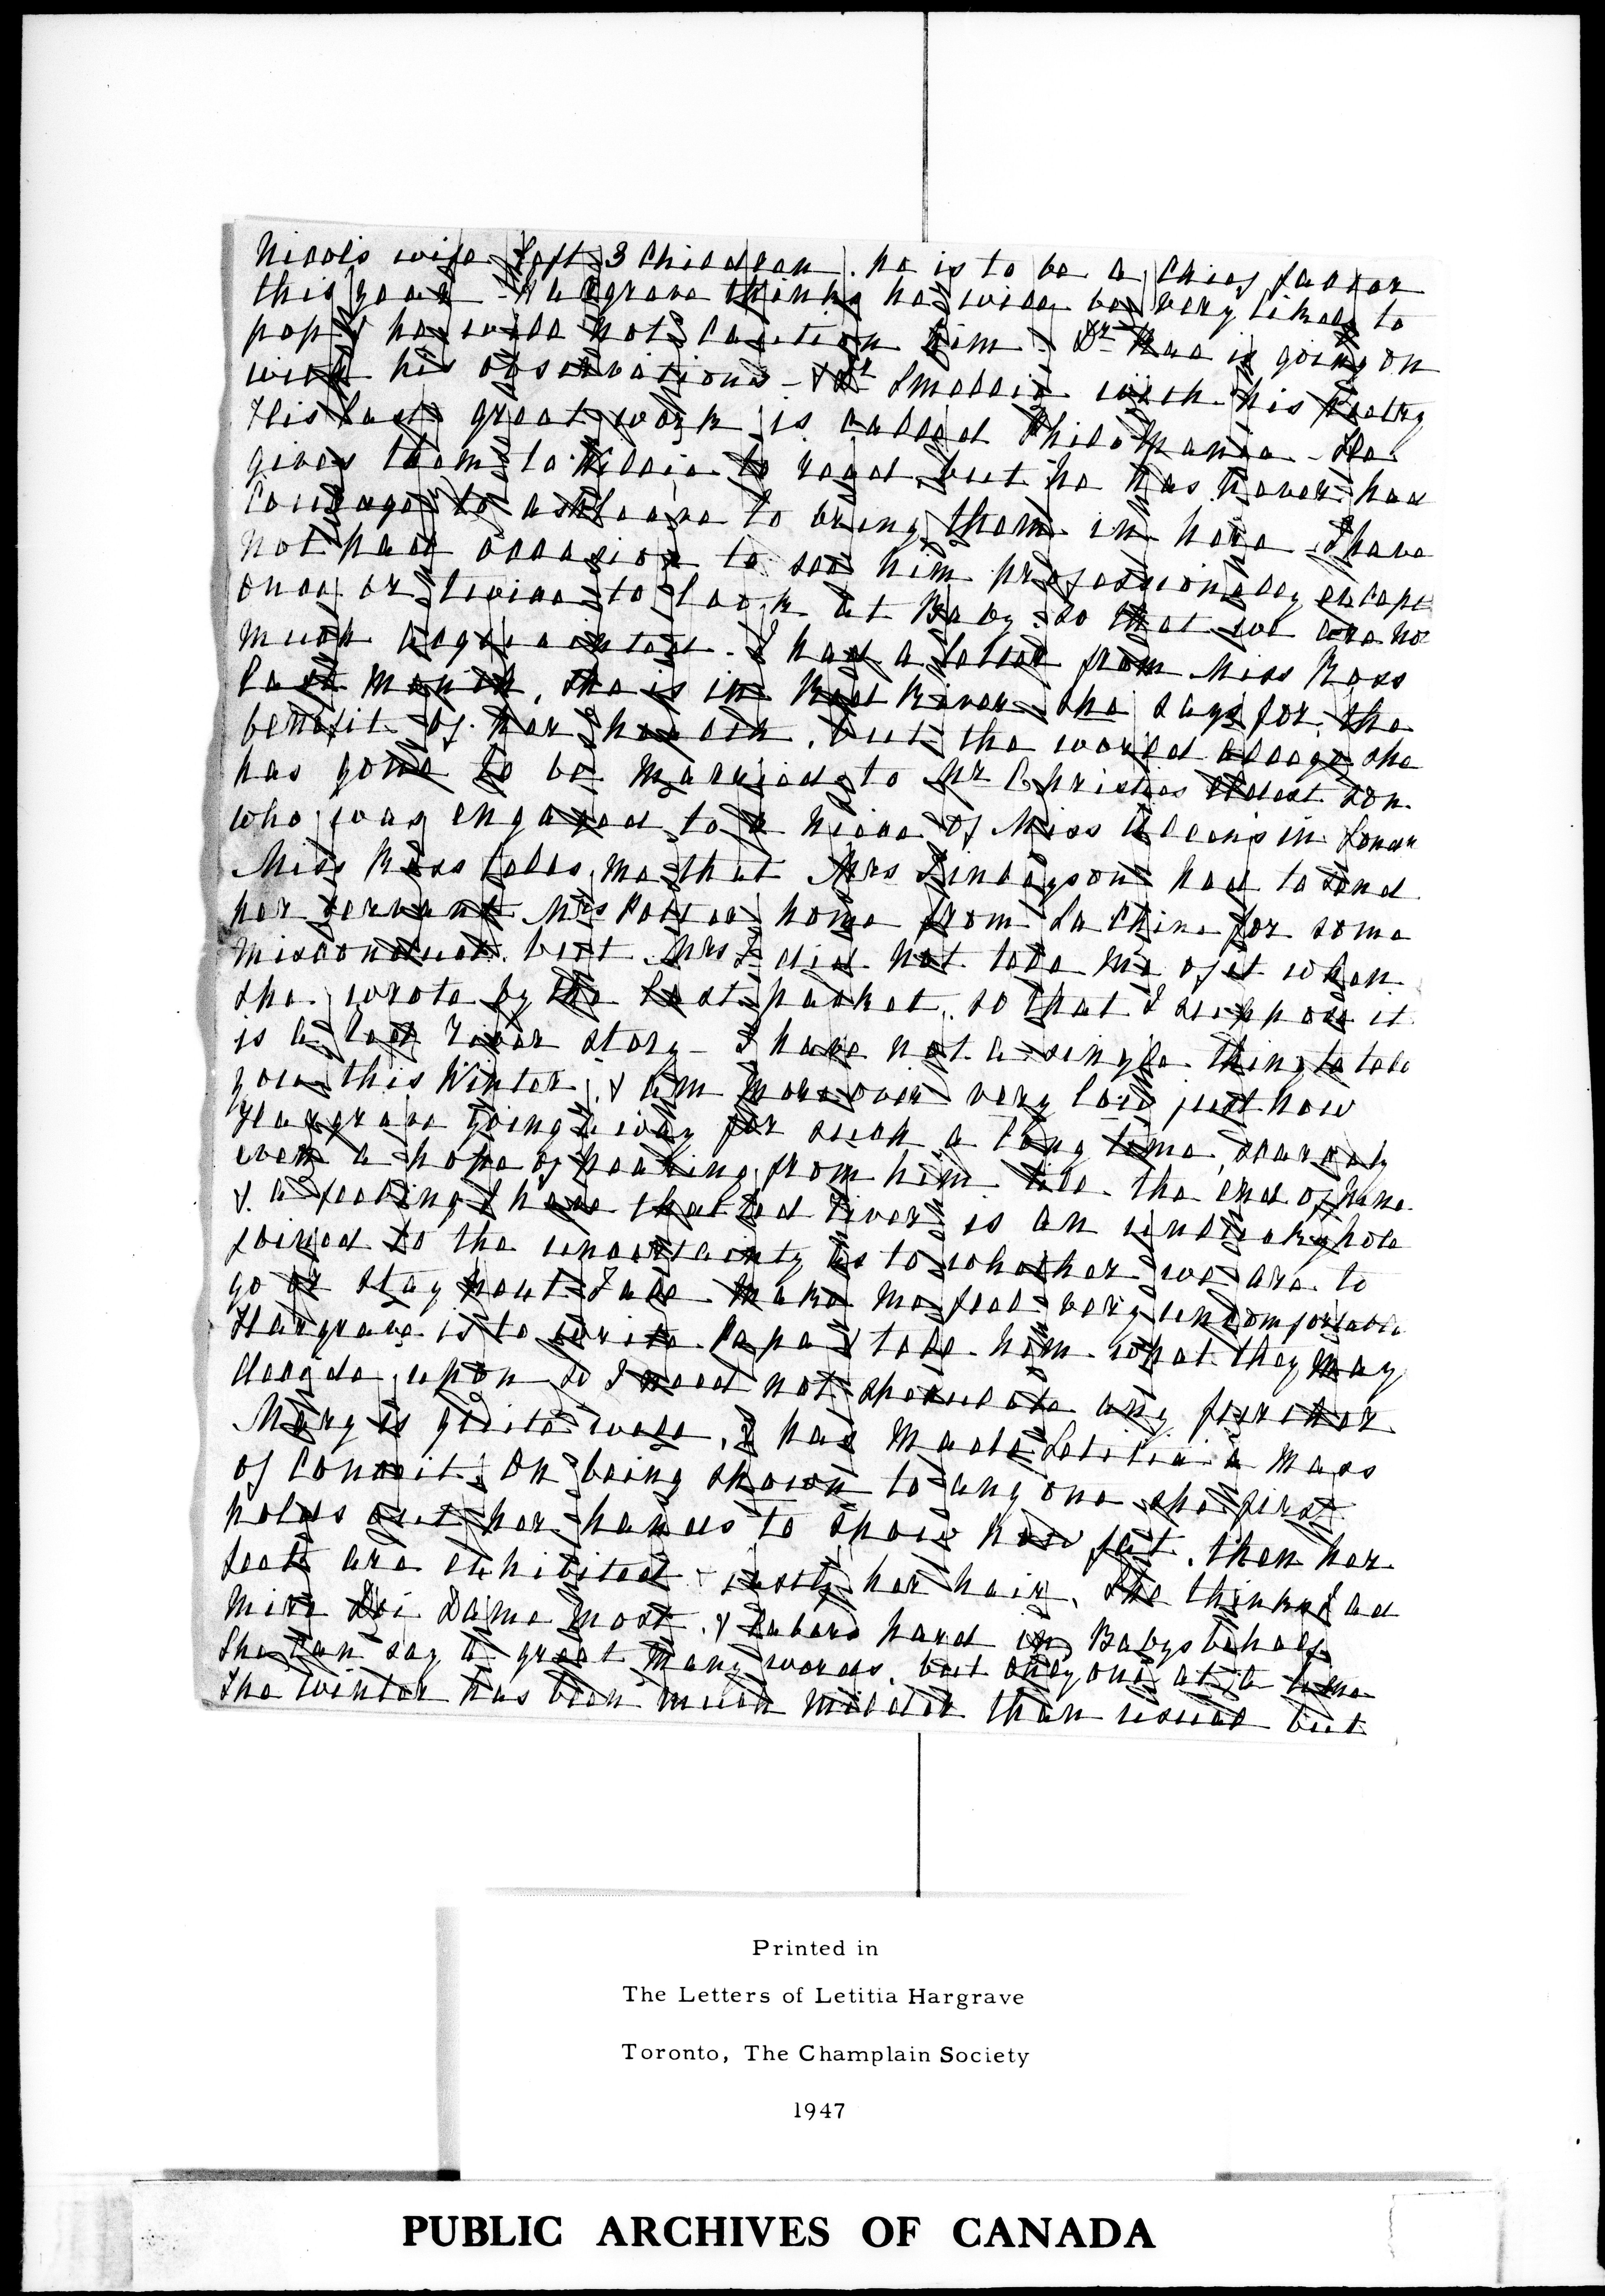 Nicols wife left 3 Children. he is to be a Chief factor
this year - Hargrave thinks he will be very likely to
pop & he will not caution him. Dr Rae is going on
with his observations - & Dr Smellie with his poetry
His last great work is called Philo Mania - He
gives them to Willie to read but he has never had
Courage to ask leave to bring them in here. I have
not had occasion to see him professionally except
once or twice to look at Baby. so that we are no
much acquainted. I had a letter from Miss Ross
last month, she is in Red River she says for the
benefit of her health, but the world allege she
has gone to be married to Mr Christies eldest son
who was engaged to a niece of Miss Allens in
Miss Ross tells me that Mrs Finlayson had to send
her servant Mrs Potter home from La Chine for some
misconduct. but Mrs F did not tell me of it when
she wrote by the last packet, so that I suppose it
is a Red River story - I have not a single thing to tell
you this Winter, & am moreover very low just now
Hargrave going away for such a long time, scarcely
even a hope of hearing from him till the end of June
& a feeling I have that Red River is an unlucky hole
joined to the uncertainty as to whether we are to
go or stay next Fall make me feel very uncomfortable
Hargrave is to write Papa & tell him what they may
decide upon so I need not speculate any further
Mary is quite well, & has made Letitia a mass
of conceit. On being shown to any one she first
holds out her hands to show how fat. then her
feet are exhibited & lastly her hair. She thinks
Dame most. & labors hard in Babys behalf
She can say a great many words. but only one at a time
The Winter has been much milder than usual but
Printed in
The Letters of Letitia Hargrave
Toronto, The Champlain Society
1947
PUBLIC ARCHIVES OF CANADA